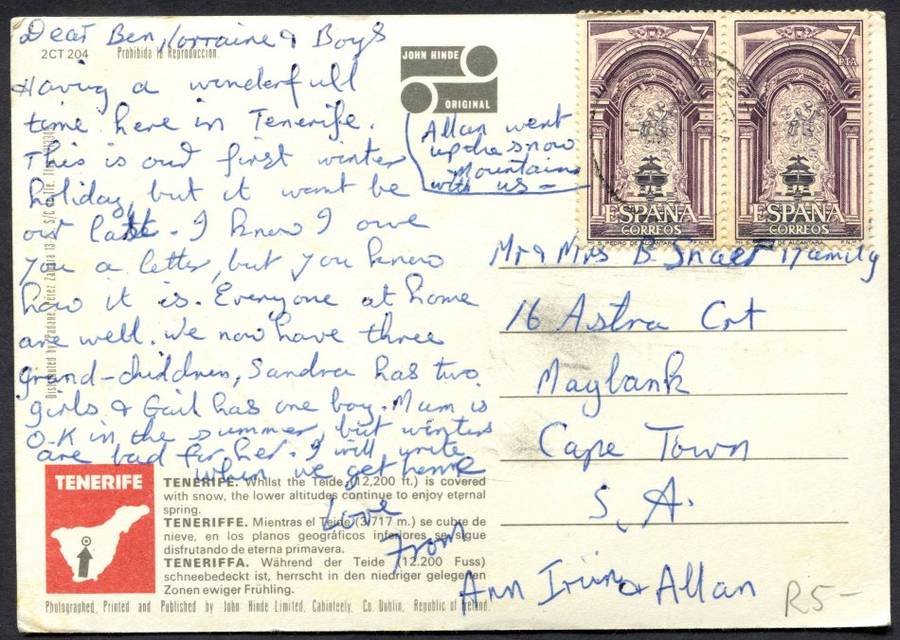 Dear Ben, Lorraine & Boys
2CT 204
Prohibida la Reproducción
Having a wonderfull
time here in Tenerife.
This is our first winter
holiday, but it wont be
our last. I know I owe
you a letter, but you know
how it is. Everyone at home
are well. We now have three
grand-children, Sandra has two
girls & Gail has one boy. Mum is
O.K in the summer, but winters
are bad for her. I will write
when we get home
Love
From
Ann & Allan
JOHN HINDE
ORIGINAL
Allan went
up the snow
Mountains
with us —
7
PTA
ESPAÑA
CORREOS
7
PTA
ESPAÑA
CORREOS
Mr & Mrs B. & Family
16 Astra Crt
Maybank
Cape Town
S.A.
Distributed by
TENERIFE
TENERIFE. Whilst the Teide (12,200 ft.) is covered
with snow, the lower altitudes continue to enjoy eternal
spring.
TENERIFFE. Mientras el Teide (3.717 m.) se cubre de
nieve, en los planos geográficos inferiores se sigue
disfrutando de eterna primavera.
TENERIFFA. Während der Teide (12.200 Fuss)
schneebedeckt ist, herrscht in den niedriger gelegenen
Zonen ewiger Frühling.
Photographed, Printed and Published by John Hinde Limited, Cabinteely, Co. Dublin, Republic of Ireland
R5-